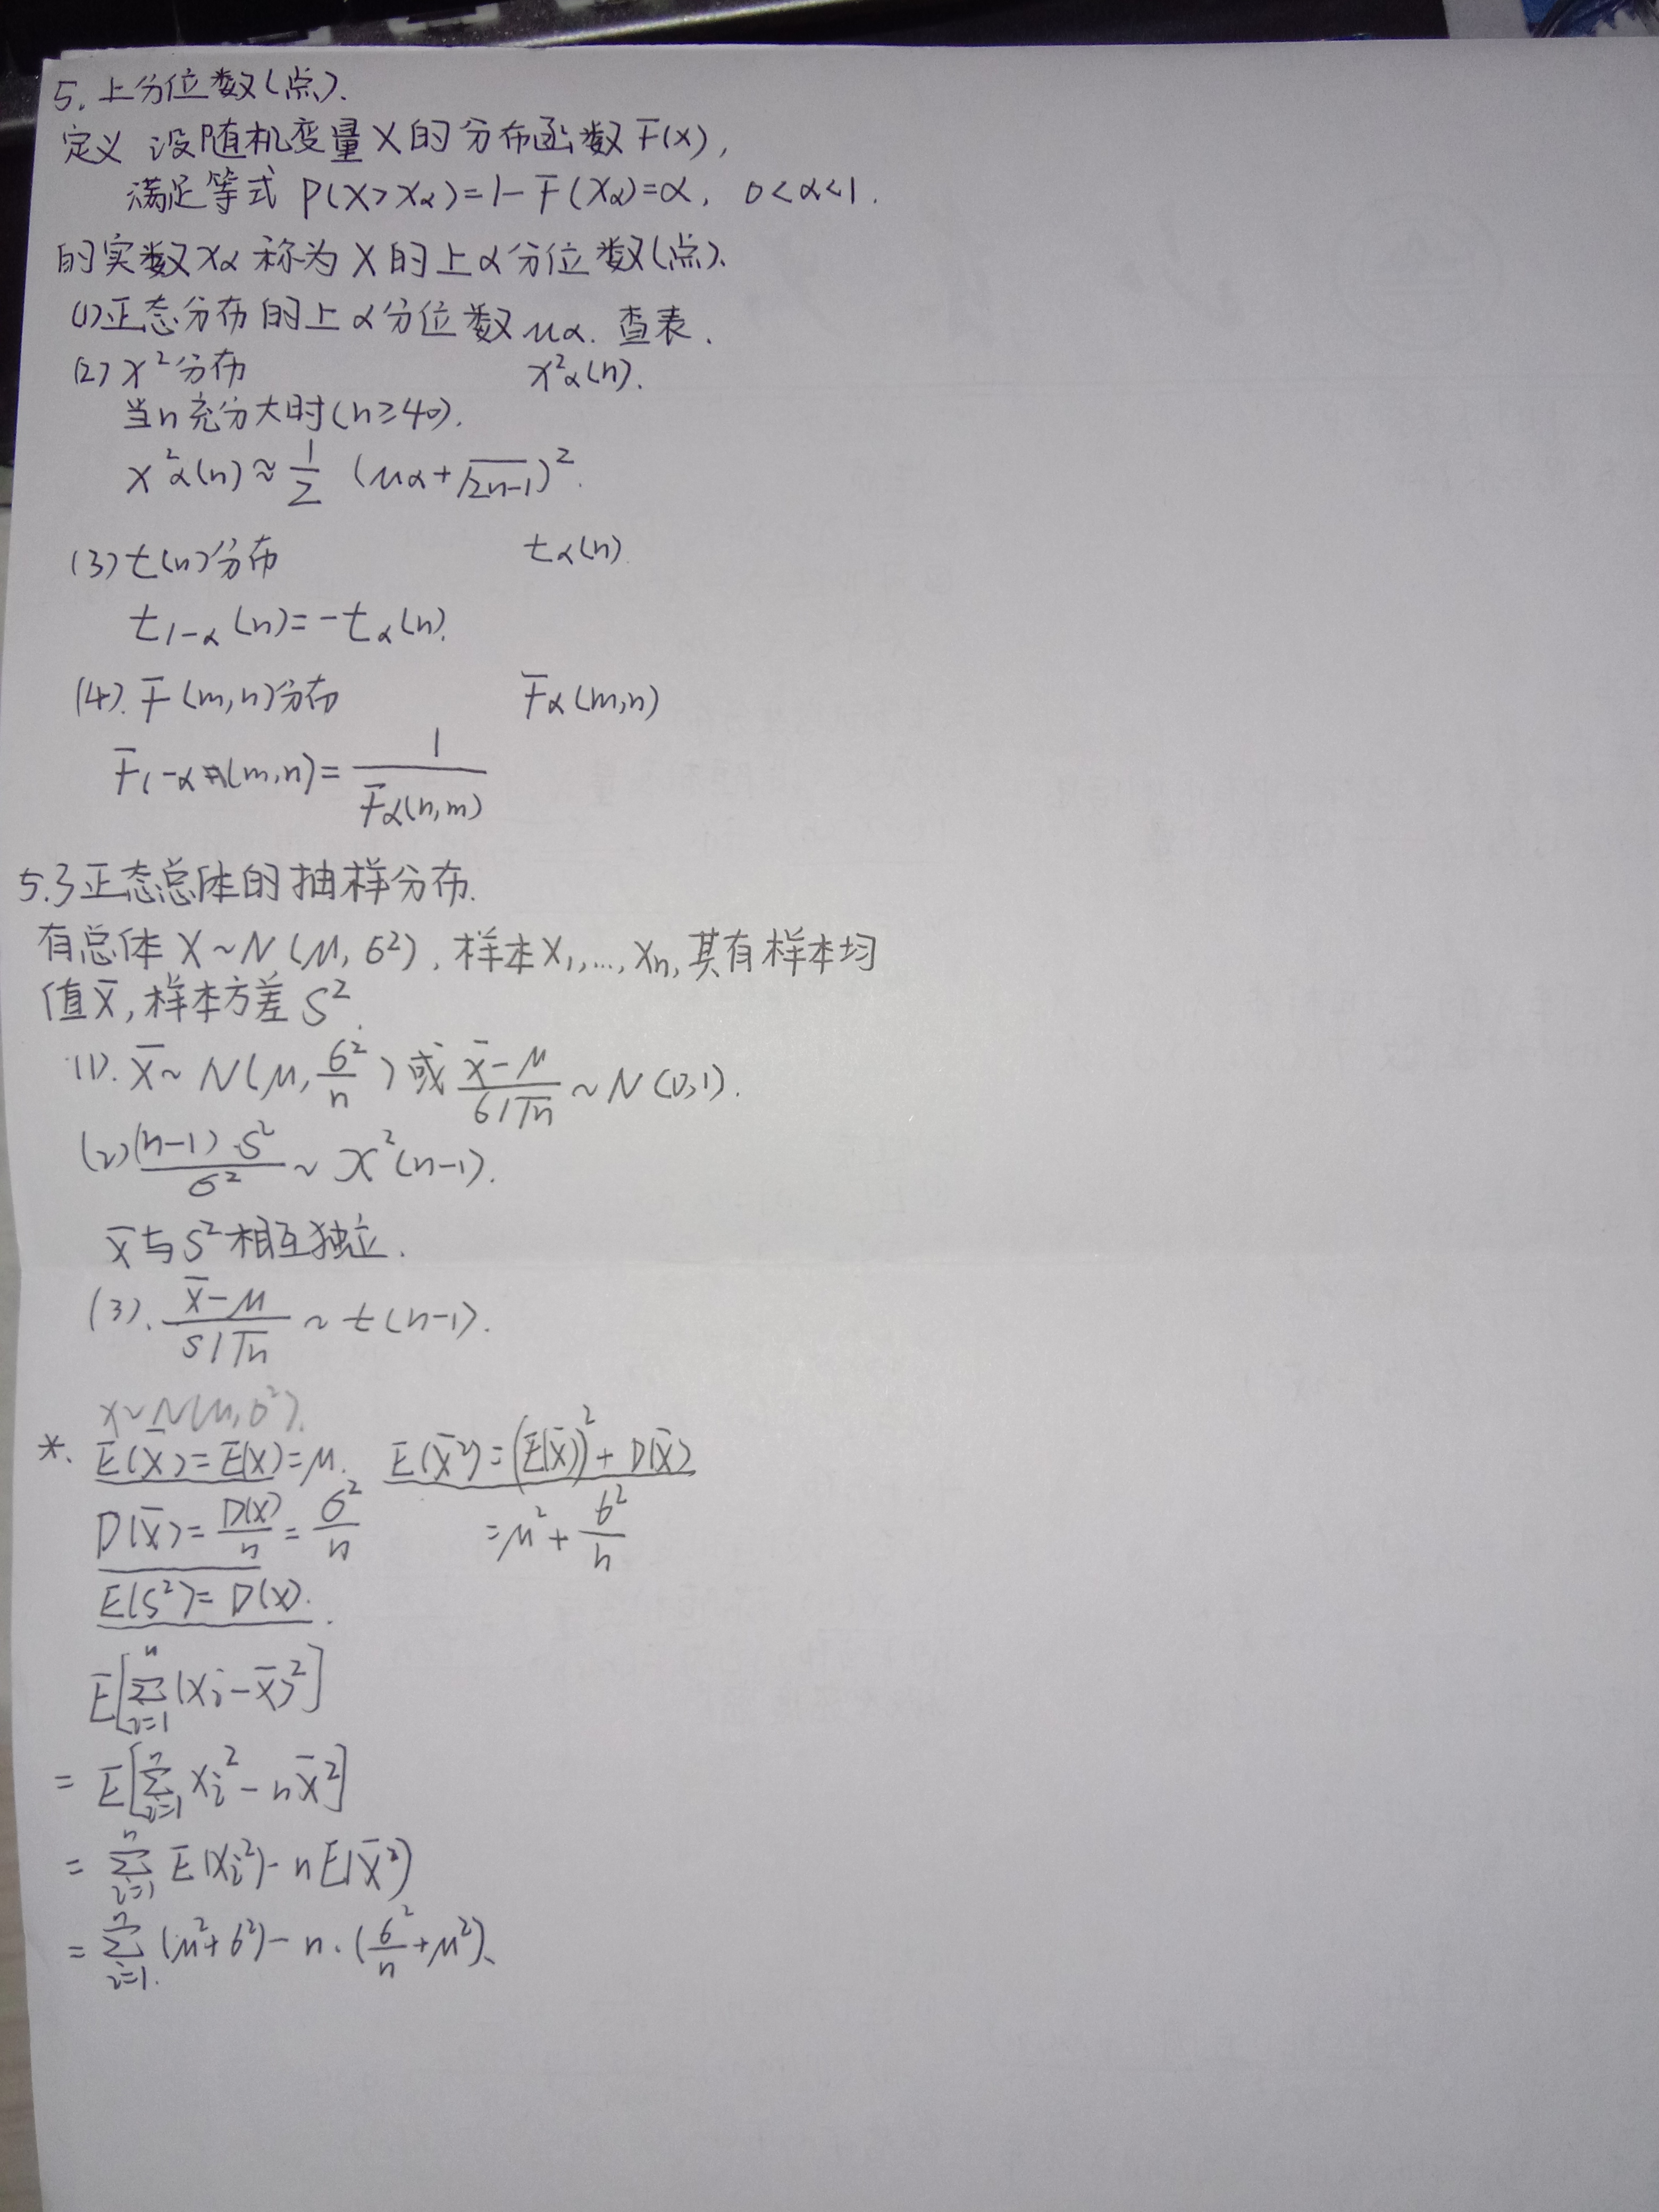 5. 上分位数(点).
定义 设随机变量X的分布函数F(x),
满足等式 P(X>xα)=1-F(xα)=α, 0<α<1.
的实数xα称为X的上α分位数(点).
(1)正态分布的上α分位数 uα. 查表.
(2) χ²分布 χ²α(n).
当n充分大时(n≥40).
χ²α(n)≈1/2 (uα+√2n-1)².
(3) t(n)分布 tα(n)
t1-α(n)=-tα(n).
(4). F(m,n)分布 Fα(m,n)
F1-α(m,n)=1/Fα(n,m)
5.3正态总体的抽样分布.
有总体 X~N(μ, σ²), 样本X1,...,Xn, 其有样本均
值X̄, 样本方差 S².
(1). X̄~N(μ, σ²/n) 或 X̄-μ/σ/√n ~N(0,1).
(2) (n-1)S²/σ² ~ χ²(n-1).
X̄与S²相互独立.
(3). X̄-μ/S/√n ~ t(n-1).
X~N(μ,σ²).
*. E(X̄)=E(X)=μ. E(X̄²)=(E(X̄))²+D(X̄)
D(X̄)=D(X)/n=σ²/n =μ²+σ²/n
E(S²)=D(X).
E[∑ⁿi=1(Xi-X̄)²]
= E[∑ⁿi=1 Xi²-nX̄²]
= ∑ⁿi=1 E(Xi²)-nE(X̄²)
= ∑ⁿi=1.(μ²+σ²)-n.(σ²/n+μ²).